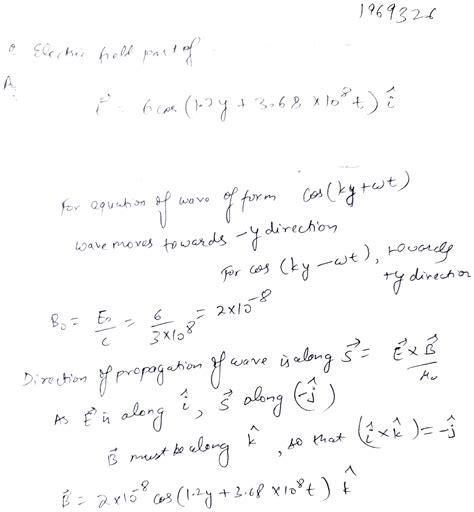 1969326
Q. Electric field part of
A.
E⃗ = 6 cos (1.2y + 3.68 × 10⁸ t) î
For equation of wave of form cos(ky+ωt)
wave moves towards -y direction
For cos (ky - ωt), towards
+y direction
B₀ = E₀/c = 6/(3×10⁸) = 2×10⁻⁸
Direction of propagation of wave is along S⃗ = (E⃗ × B⃗)/μ₀
As E⃗ is along î, S⃗ along (-ĵ)
B⃗ must be along k̂, so that (î × k̂) = -ĵ
B⃗ = 2×10⁻⁸ cos(1.2y + 3.68 × 10⁸ t) k̂